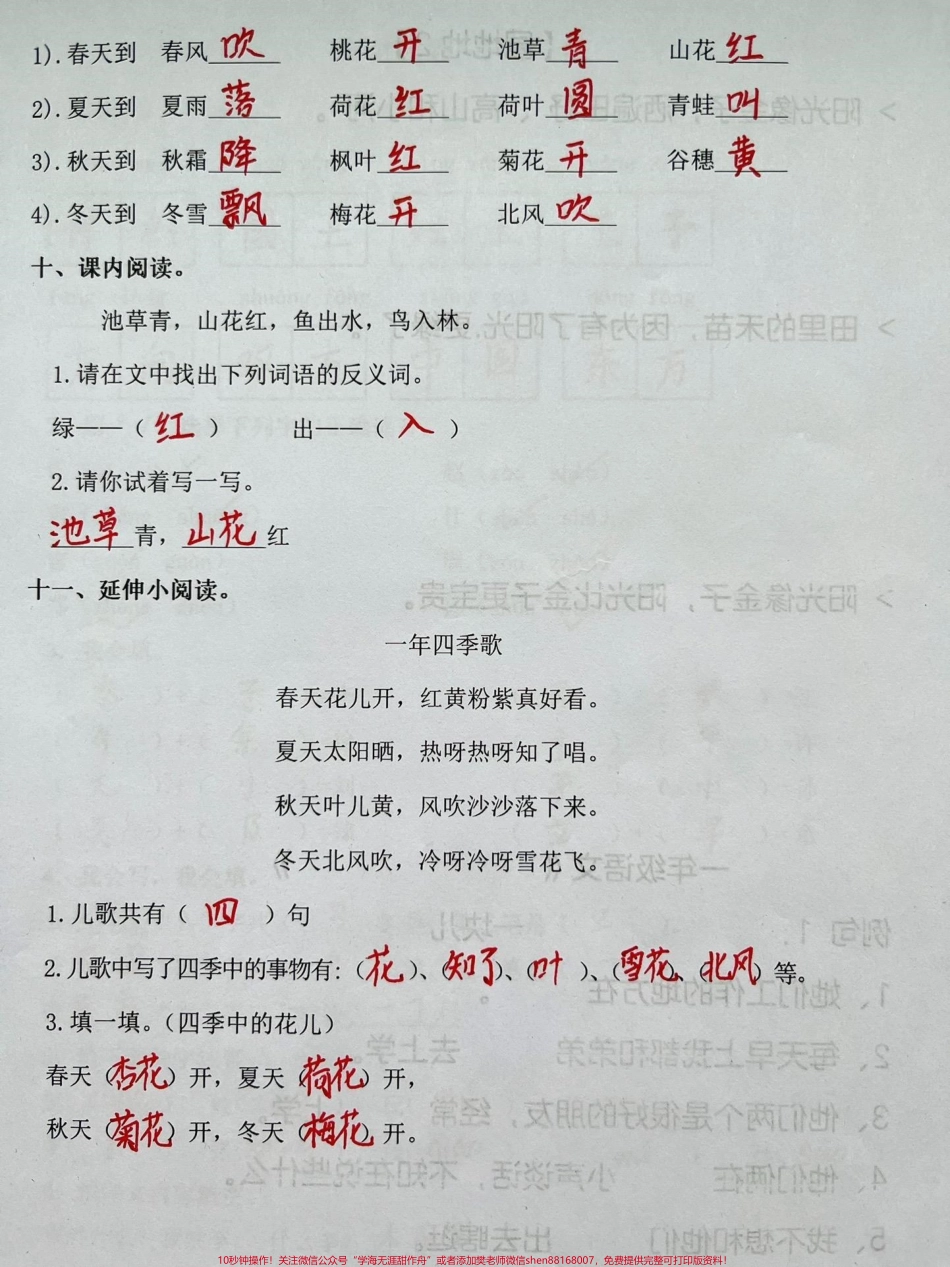 1).春天到 春风吹 桃花开 池草青 山花红
2).夏天到 夏雨落 荷花红 荷叶圆 青蛙叫
3).秋天到 秋霜降 枫叶红 菊花开 谷穗黄
4).冬天到 冬雪飘 梅花开 北风吹
十、课内阅读。
池草青，山花红，鱼出水，鸟入林。
1.请在文中找出下列词语的反义词。
绿——（红） 出——（入）
2.请你试着写一写。
池草青，山花红
十一、延伸小阅读。
一年四季歌
春天花儿开，红黄粉紫真好看。
夏天太阳晒，热呀热呀知了唱。
秋天叶儿黄，风吹沙沙落下来。
冬天北风吹，冷呀冷呀雪花飞。
1.儿歌共有（四）句
2.儿歌中写了四季中的事物有:（花）、（知了）、（叶）、（雪花）、（北风）等。
3.填一填。（四季中的花儿）
春天（杏花）开，夏天（荷花）开，
秋天（菊花）开，冬天（梅花）开。
10秒钟操作！关注微信公众号“学海无涯甜作舟”或者添加樊老师微信shen88168007，免费提供完整可打印版资料！